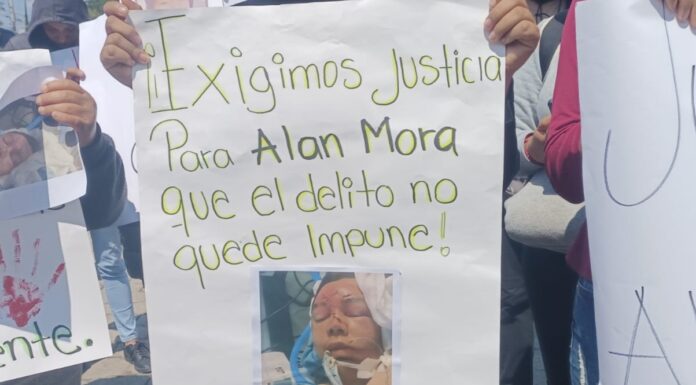 ¡Exigimos Justicia
Para Alan Mora
que el delito no
quede Impune!
ente.
J
A